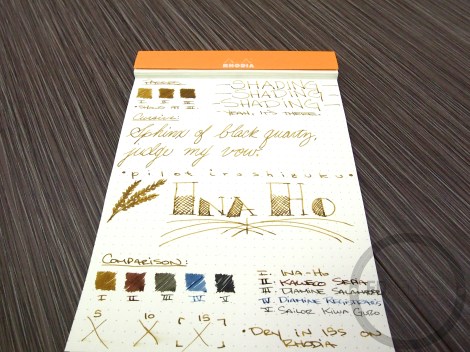 RHODIA
SHADING
SHADING
I II III
SHADING
YEAH, IT'S THERE.
Cursive:
Sphinx of black quartz,
judge my vow.
• pilot iroshizuku •
INA HO
COMPARISON:
I. INA-HO
II. KAWECO SEPIA
III. DIAMINE SALAMANDER
IV. DIAMINE
V. SAILOR KIWA GURO
I II III IV V
5 10 [15]
• DRY IN 15S ON
RHODIA